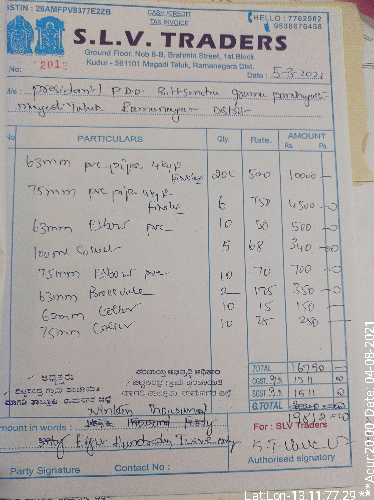 GSTIN : 29AMFPV8377E2ZB
CASH/CREDIT
TAX INVOICE
HELLO : 7762982
9538676458
S.L.V. TRADERS
Ground Floor, Nob 8-B, Brahmin Street, 1st Block
Kudur - 561101 Magadi Taluk, Ramanagara Dist.
No: 2012
Date : 5-3-2021
president / PDO Bittsandra grama panchayath
magadi Taluk Ramanagar Dist
No PARTICULARS Qty. Rate. AMOUNT
Rs. Ps.
63mm pvc pipe 4kgf 20L 500 10000
75mm pvc pipe 4kgf 6 750 4500
63mm Elbow pvc 10 50 500
5 68 340
75mm Elbow pvc 10 70 700
63mm 2 175 350
63mm Coller 10 15 150
75mm Coller 10 25 250
TOTAL 16790
CGST 9% 1511
SGST 9% 1511
G.TOTAL 19812
ಅಧ್ಯಕ್ಷರು
Amount in words :
For : SLV Traders
Party Signature
Contact No :
Authorised signatory
Lat Lon-13.11:77.29
Accur 20.00 Date 04-08-2021